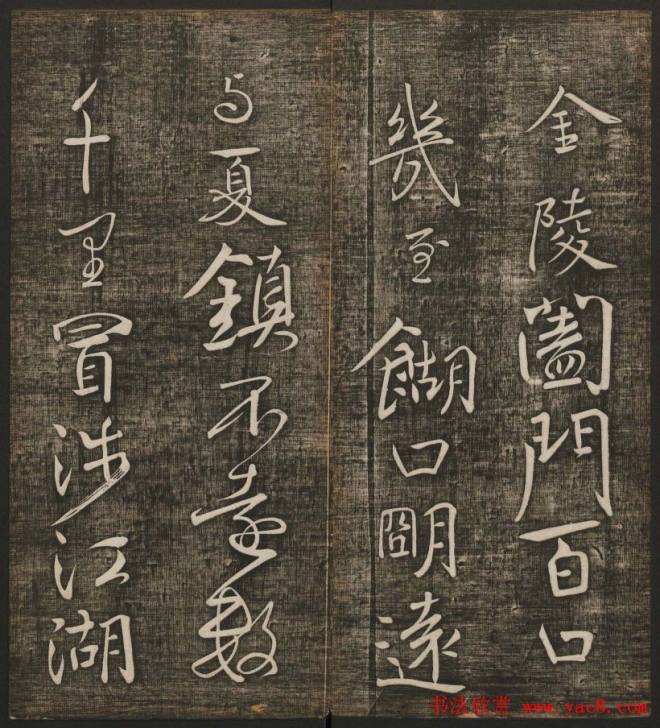 金陵闔門百口
幾至餬口朙遠
与夏鎮不遠數
千里冒涉江湖
书法欣赏 www.yac8.com